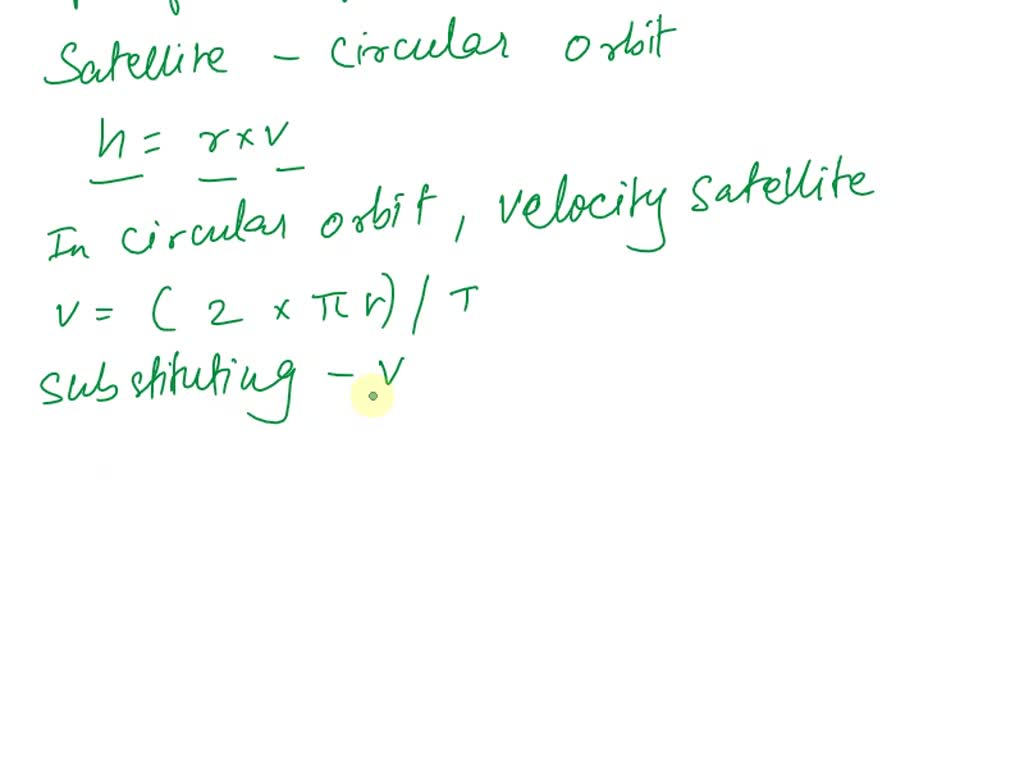 Satellite - circular orbit
h = r × v
In circular orbit, velocity satellite
v = ( 2 × π r) / T
substituting - v